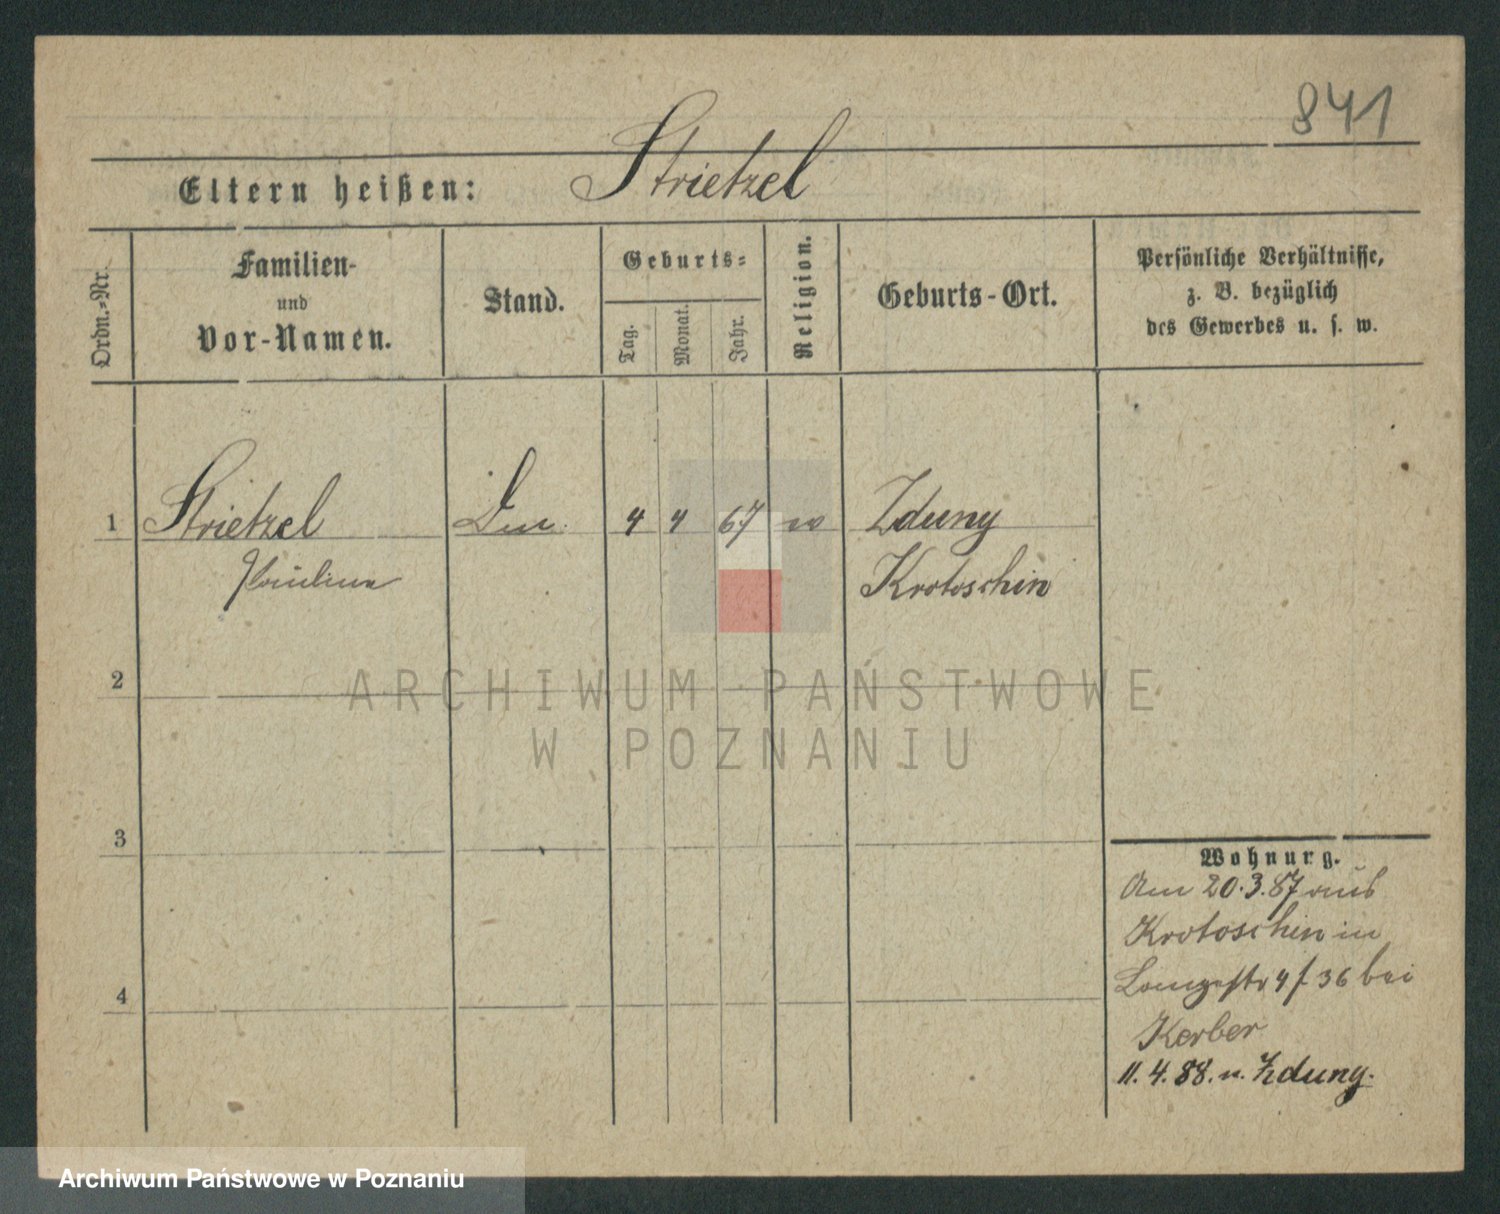 841
Eltern heißen: Strietzel
Ordn.-Nr.
Familien-
und
Vor-Namen.
Stand.
Geburts-
Tag.
Monat.
Jahr.
Religion.
Geburts-Ort.
Persönliche Verhältnisse,
z. B. bezüglich
des Gewerbes u. s. w.
1 Strietzel 4 4 67 Zduny
Paulina Krotoschin
2
ARCHIWUM PAŃSTWOWE
W POZNANIU
3
4
Wohnung.
Am 20.3.87 aus
Krotoschin in
Langestr 4 f 36 bei
Kerber
11. 4. 88. n. Zduny.
Archiwum Państwowe w Poznaniu